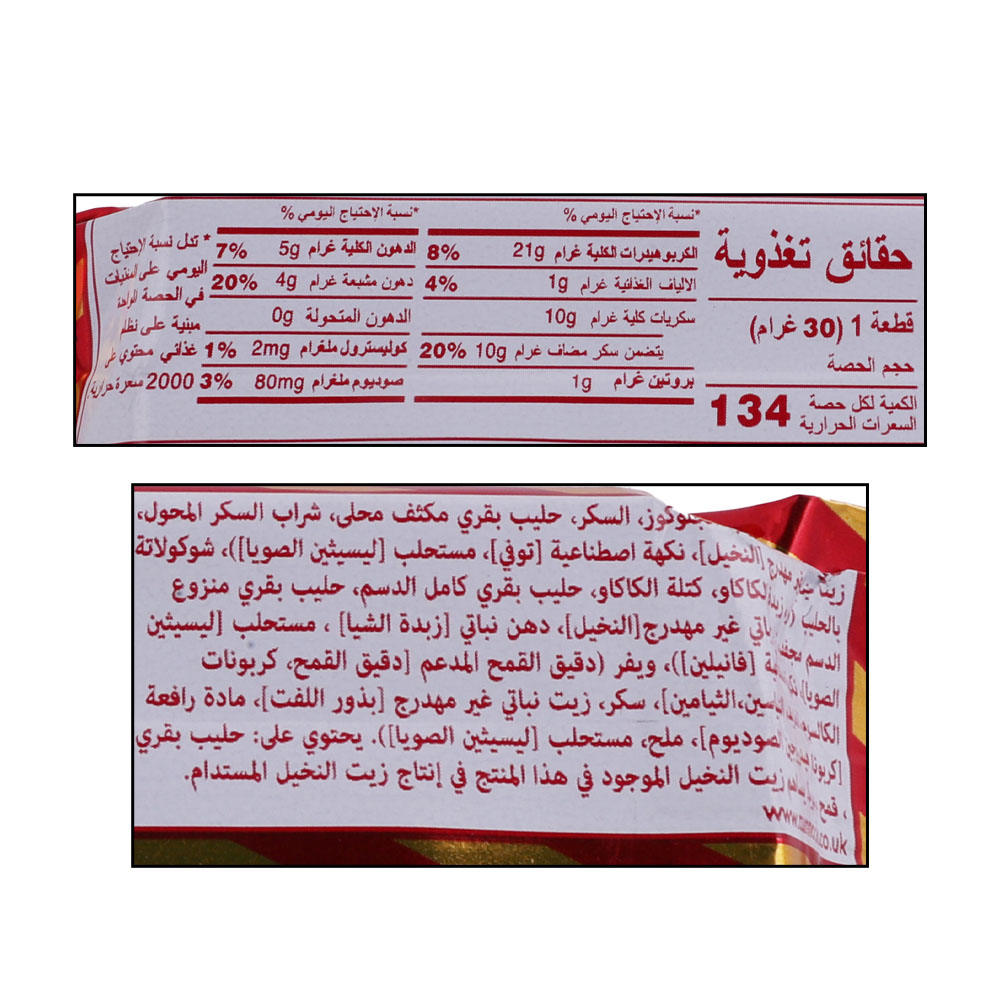 حقائق تغذوية
قطعة 1 (30 غرام)
حجم الحصة
الكمية لكل حصة
السعرات الحرارية 134
*نسبة الإحتياج اليومي %
الكربوهيدرات الكلية غرام 21g 8%
الالياف الغذائية غرام 1g 4%
سكريات كلية غرام 10g
يتضمن سكر مضاف غرام 10g 20%
بروتين غرام 1g
*نسبة الإحتياج اليومي %
الدهون الكلية غرام 5g 7%
دهون مشبعة غرام 4g 20%
الدهون المتحولة 0g
كوليسترول ملغرام 2mg 1%
صوديوم ملغرام 80mg 3%
* تدل نسبة الإحتياج
اليومي على
في الحصة
مبنية على
غذائي محتوي على
2000 سعرة حرارية.
السكر، حليب بقري مكثف محلى، شراب السكر المحول،
مهدرج [النخيل]، نكهة اصطناعية [توفي]، مستحلب [ليسيثين الصويا])، شوكولاتة
بالحليب الكاكاو، كتلة الكاكاو، حليب بقري كامل الدسم، حليب بقري منزوع
الدسم غير مهدرج[النخيل]، دهن نباتي [زبدة الشيا] ، مستحلب [ليسيثين
الصويا]، [ڤانيلين])، ويفر (دقيق القمح المدعم [دقيق القمح، كربونات
الثيامين]، سكر، زيت نباتي غير مهدرج [بذور اللفت]، مادة رافعة
الصوديوم]، ملح، مستحلب [ليسيثين الصويا]). يحتوي على: حليب بقري
، قمح، زيت النخيل الموجود في هذا المنتج في إنتاج زيت النخيل المستدام.